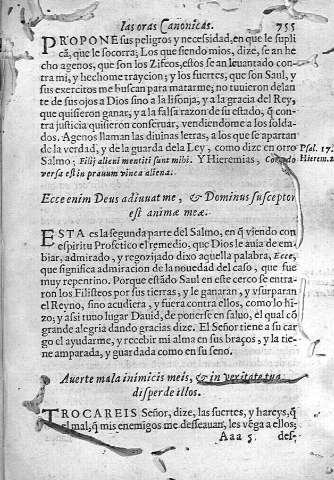 las oras Canonicas. 755
PROPONE sus peligros y necesidad, en que le supli
cà, que le socorra; Los que siendo mios, dize, se an he
cho agenos, que son los Zifeos, estos se an leuantado con
tra mi, y hechome trayciõn; y los fuertes, que son Saul, y
sus exercitos me buscan para matarme; no tuuieron delan
te de sus ojos a Dios sino a la lisonja, y a la gracia del Rey,
que quisieron ganar, y a la falsa razon de su estado, q̃ con
tra justicia quisieron conseruar, vendiendome a los solda-
dos. Agenos llaman las diuinas letras, a los que se apartan
de la verdad, y de la guarda de la Ley, como dize en otro
Psal. 17.
Salmo; Filij alieni mentiti sunt mihi. Y Hieremias, Con
Hierem. 2
versa est in prauum vinea aliena.
Ecce enim Deus adiuuat me, & Dominus susceptor
est animæ meæ.
ESTA es la segunda parte del Salmo, en q̃ viendo con
espiritu Profetico el remedio, que Dios le auia de em-
biar, admirado, y regozijado dixo aquella palabra, Ecce,
que significa admiracion de la nouedad del caso, que fue
muy repentino. Porque estãdo Saul en este cerco se entra-
ron los Filisteos por sus tierras, y le ganaran, y vsurparan
el Reyno, sino acudiera, y fuera contra ellos, como lo hi-
zo; y assi tuuo lugar Dauid, de ponerse en saluo, el qual cõ
grande alegria dando gracias dize. El Señor tiene a su car-
go el ayudarme, y recebir mi alma en sus braços, y la tie-
ne amparada, y guardada como en su seno.
Auerte mala inimicis meis, & in veritate tua
disperde illos.
TROCAREIS Señor, dize, las suertes, y hareys, q̃
el mal, q̃ mis enemigos me desseauan, les vẽga a ellos;
Aaa 5 des-